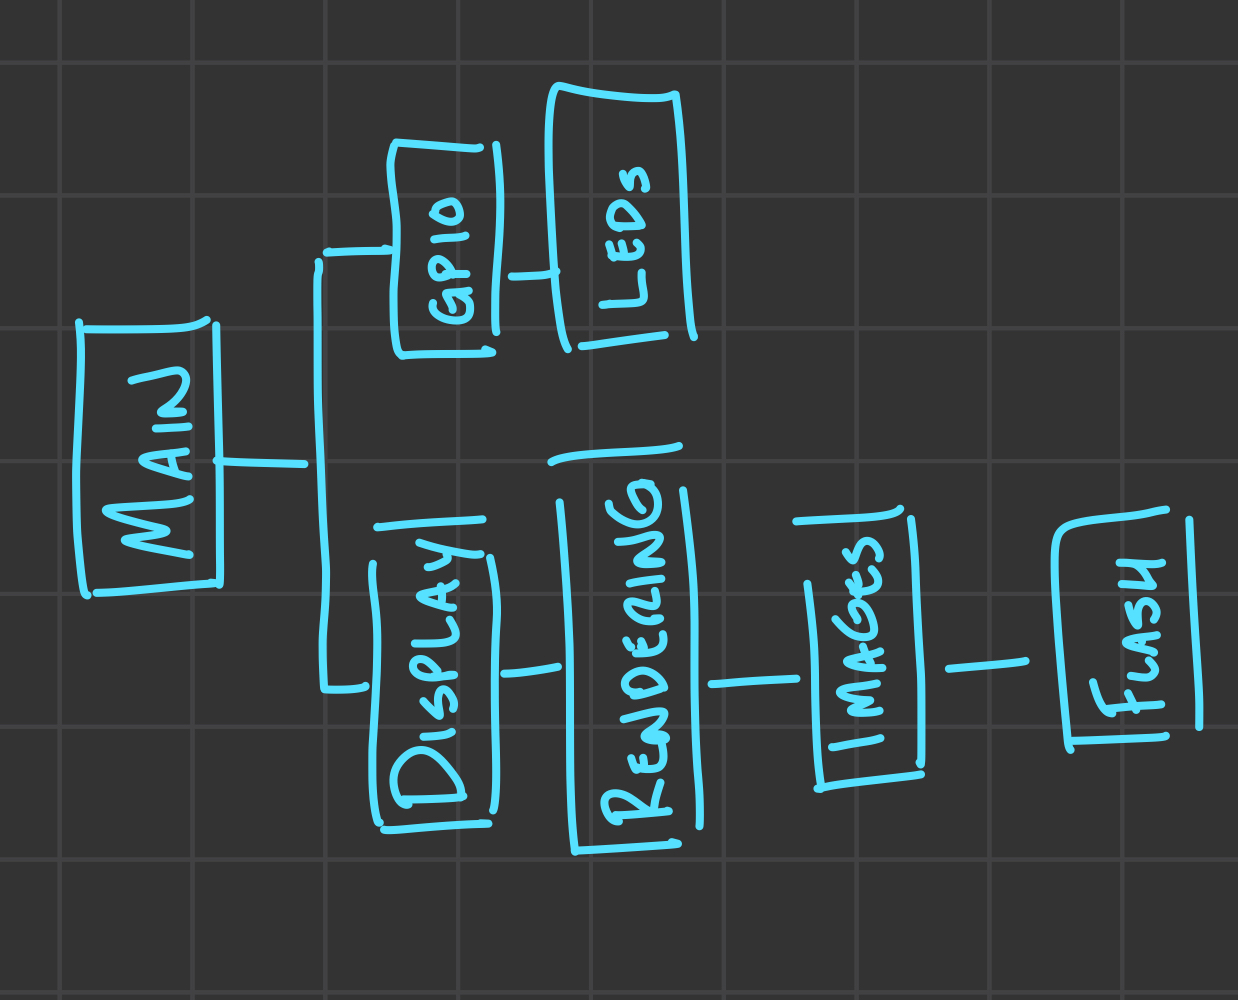 MAIN
DISPLAY
GPIO
RENDERING
LEDs
IMAGES
FLASH